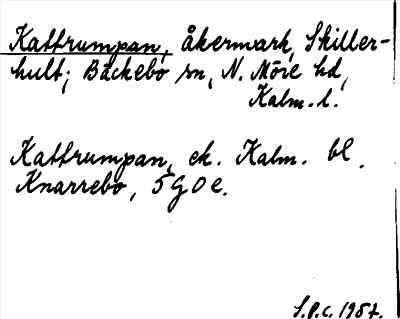 Kattrumpan, åkermark, Skiller-
hult; Bäckebo sn, N. Möre hd,
Kalm. l.
Kattrumpan, ek. Kalm. bl.
Knarrebo, 5 G 0 e.
S.P.C. 1957.